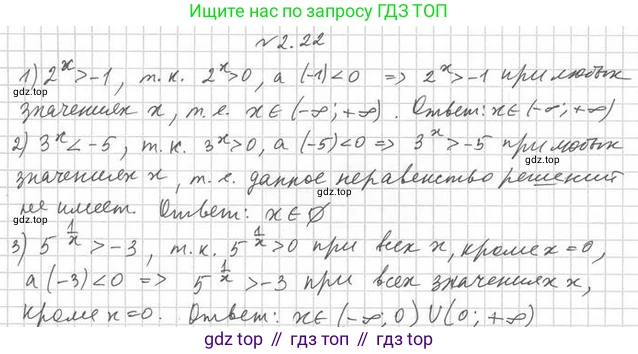 Ищите нас по запросу ГДЗ ТОП
№2.22
1) 2^x > -1, т.к. 2^x > 0, а (-1) < 0 => 2^x > -1 при любых
значениях x, т.е. x ∈ (-∞; +∞). Ответ: x ∈ (-∞; +∞)
2) 3^x < -5, т.к. 3^x > 0, а (-5) < 0 => 3^x > -5 при любых
значениях x, т.е. данное неравенство решений
не имеет. Ответ: x ∈ ∅
3) 5^(1/x) > -3, т.к. 5^(1/x) > 0 при всех x, кроме x = 0,
а (-3) < 0 => 5^(1/x) > -3 при всех значениях x,
кроме x = 0. Ответ: x ∈ (-∞; 0) U (0; +∞)
gdz.top
gdz.top
gdz.top
gdz.top
gdz.top
gdz.top // gdz.top // gdz.top